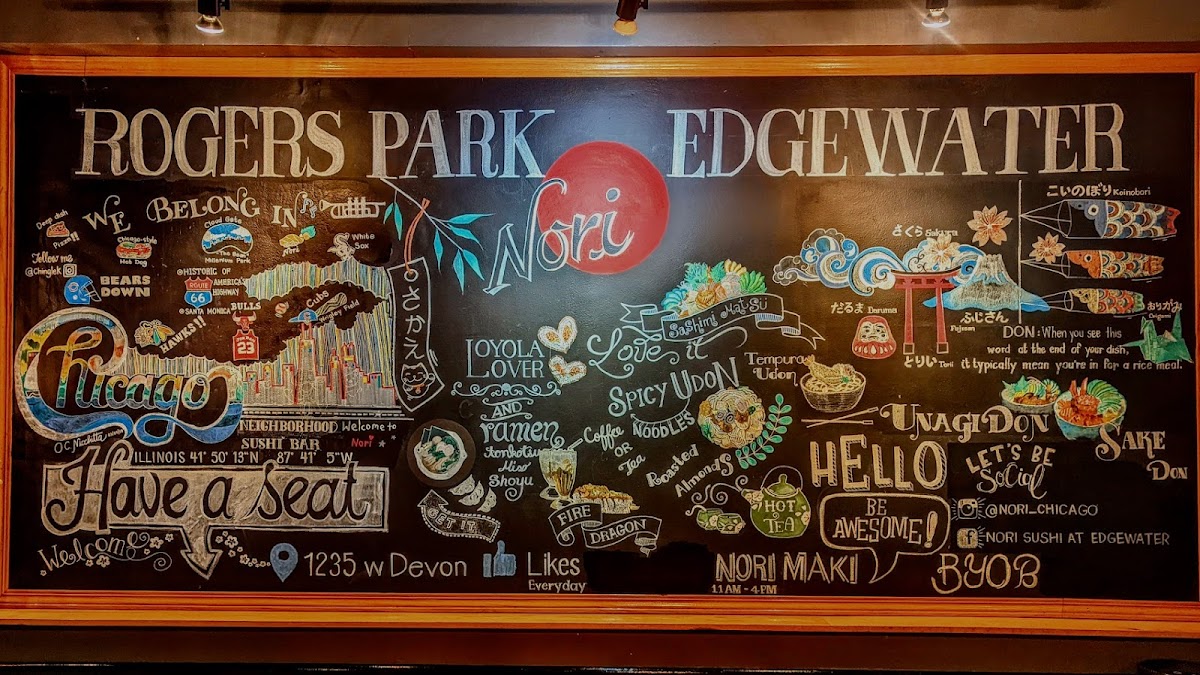 ROGERS PARK EDGEWATER
Nori
WE BELONG IN
Deep dish
Pizza!!
Chicago-style
Hot Dog
Cloud Gate
"The Bean"
Millennium Park
White
Sox
Follow me
@Chinglek
BEARS
DOWN
@HISTORIC OF
AMERICA'S
HIGHWAY
ROUTE
66
@SANTA MONICA
BULLS
23
Cubs
Wrigley Field
HAWKS!!
Chicago
NEIGHBORHOOD
SUSHI BAR
Welcome to
Nori
ILLINOIS 41° 50' 13"N 87° 41' 5"W
Have a seat
Welcome
1235 W Devon
Likes
Everyday
さかえ
LOYOLA
LOVER
AND
ramen
Tonkotsu
Miso
Shoyu
GET IT
Sashimi Mai-Su
Love it
SPICY UDON
NOODLES
Coffee
OR
Tea
Roasted
Almonds
FIRE
DRAGON
HOT
TEA
Tempura
Udon
こいのぼり Koinobori
さくら Sakura
だるま Daruma
とりい Torii
ふじさん
Fujisan
おりがみ
Origami
DON: When you see this
word at the end of your dish,
it typically mean you're in for a rice meal.
UNAGI DON
SAKE
DON
HELLO
BE
AWESOME!
LET'S BE
Social
@NORI_CHICAGO
NORI SUSHI AT EDGEWATER
NORI MAKI
11AM - 4PM
BYOB